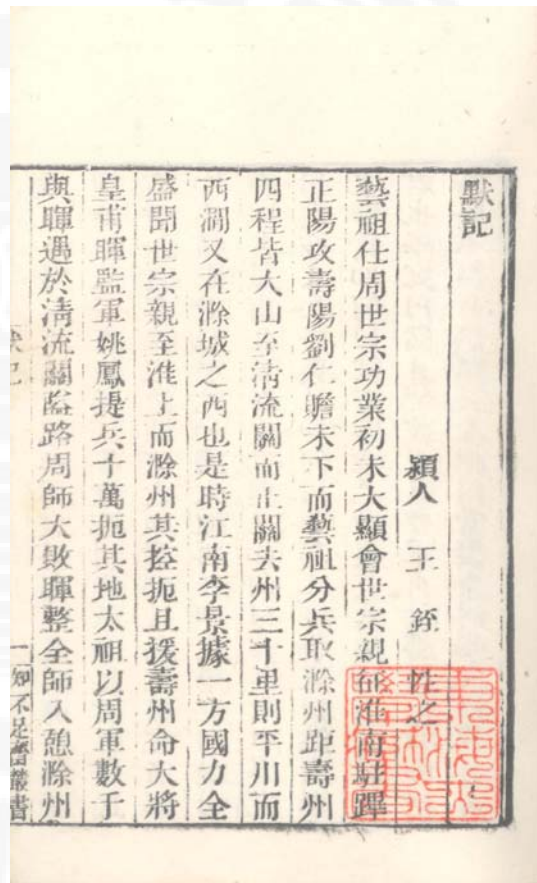 默記
潁人 王 銍 性之
藝祖仕周世宗功業初未大顯會世宗親征淮南駐蹕
正陽攻壽陽劉仁贍未下而藝祖分兵取滁州距壽州
四程皆大山至清流關而止關去州三十里則平川而
西澗又在滁城之西也是時江南李景據一方國力全
盛聞世宗親至淮上而滁州其控扼且援壽州命大將
皇甫暉監軍姚鳳提兵十萬扼其地太祖以周軍數千
與暉遇於清流關隘路周師大敗暉整全師入憩滁州
默記
一
知不足齋叢書